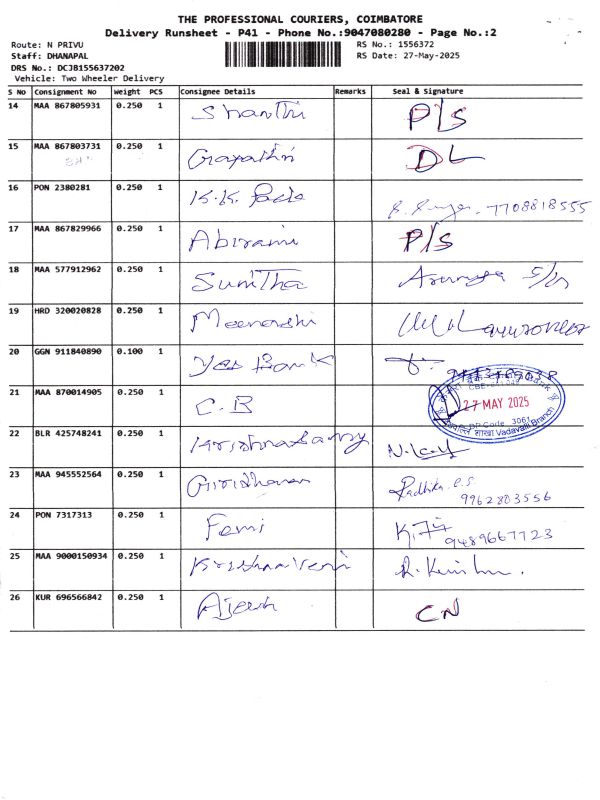 THE PROFESSIONAL COURIERS, COIMBATORE
Delivery Runsheet - P41 - Phone No.:9047080280 - Page No.:2
Route: N PRIVU
RS No.: 1556372
Staff: DHANAPAL
RS Date: 27-May-2025
DRS No.: DCJB155637202
Vehicle: Two Wheeler Delivery
S No Consignment No Weight PCS Consignee Details Remarks Seal & Signature
14 MAA 867805931 0.250 1 Shanthi P/S
15 MAA 867803731 0.250 1 Gayathri DL
16 PON 2380281 0.250 1 K.K. 7708818555
17 MAA 867829966 0.250 1 Abirami P/S
18 MAA 577912962 0.250 1 Sunitha
19 HRD 320020828 0.250 1 Meenakshi
20 GGN 911840890 0.100 1 Yes Bank
21 MAA 870014905 0.250 1 C.B
27 MAY 2025
DP Code 3061
Vadavalli Branch
22 BLR 425748241 0.250 1 Krishnasamy
23 MAA 945552564 0.250 1 Giridharan Radhika.e.s
9962803556
24 PON 7317313 0.250 1 Femi
9489667723
25 MAA 9000150934 0.250 1 Krishnaveni
26 KUR 696566842 0.250 1 Ajeesh CN